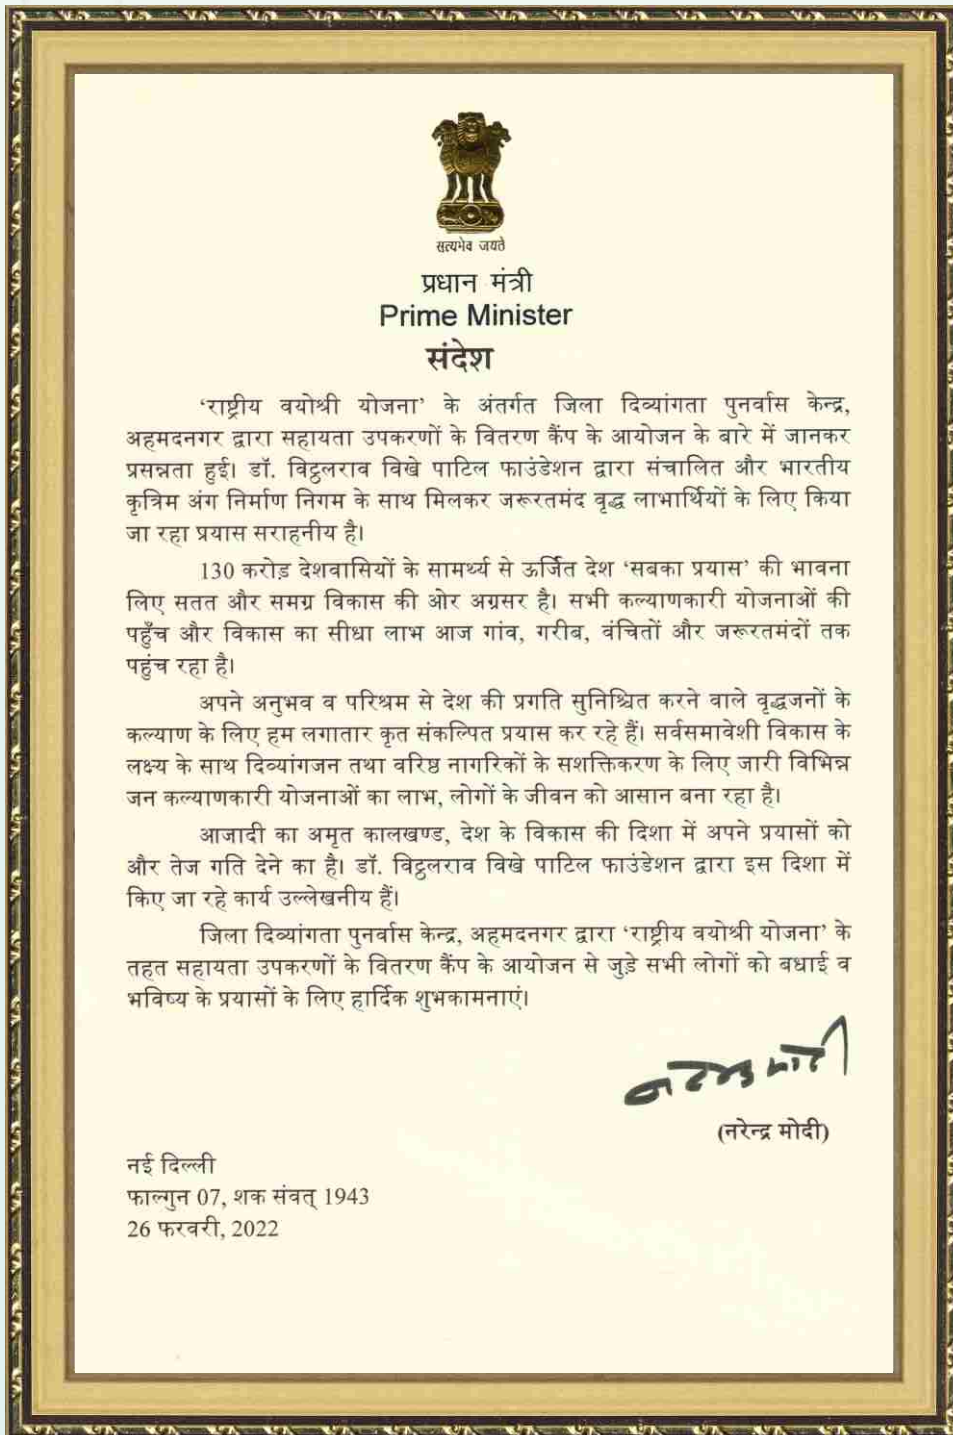 सत्यमेव जयते
प्रधान मंत्री
Prime Minister
संदेश
‘राष्ट्रीय वयोश्री योजना’ के अंतर्गत जिला दिव्यांगता पुनर्वास केन्द्र,
अहमदनगर द्वारा सहायता उपकरणों के वितरण कैंप के आयोजन के बारे में जानकर
प्रसन्नता हुई। डॉ. विट्ठलराव विखे पाटिल फाउंडेशन द्वारा संचालित और भारतीय
कृत्रिम अंग निर्माण निगम के साथ मिलकर जरूरतमंद वृद्ध लाभार्थियों के लिए किया
जा रहा प्रयास सराहनीय है।
130 करोड़ देशवासियों के सामर्थ्य से ऊर्जित देश ‘सबका प्रयास’ की भावना
लिए सतत और समग्र विकास की ओर अग्रसर है। सभी कल्याणकारी योजनाओं की
पहुँच और विकास का सीधा लाभ आज गांव, गरीब, वंचितों और जरूरतमंदों तक
पहुंच रहा है।
अपने अनुभव व परिश्रम से देश की प्रगति सुनिश्चित करने वाले वृद्धजनों के
कल्याण के लिए हम लगातार कृत संकल्पित प्रयास कर रहे हैं। सर्वसमावेशी विकास के
लक्ष्य के साथ दिव्यांगजन तथा वरिष्ठ नागरिकों के सशक्तिकरण के लिए जारी विभिन्न
जन कल्याणकारी योजनाओं का लाभ, लोगों के जीवन को आसान बना रहा है।
आजादी का अमृत कालखण्ड, देश के विकास की दिशा में अपने प्रयासों को
और तेज गति देने का है। डॉ. विट्ठलराव विखे पाटिल फाउंडेशन द्वारा इस दिशा में
किए जा रहे कार्य उल्लेखनीय हैं।
जिला दिव्यांगता पुनर्वास केन्द्र, अहमदनगर द्वारा ‘राष्ट्रीय वयोश्री योजना’ के
तहत सहायता उपकरणों के वितरण कैंप के आयोजन से जुड़े सभी लोगों को बधाई व
भविष्य के प्रयासों के लिए हार्दिक शुभकामनाएं।
नरेन्द्र मोदी
(नरेन्द्र मोदी)
नई दिल्ली
फाल्गुन 07, शक संवत् 1943
26 फरवरी, 2022